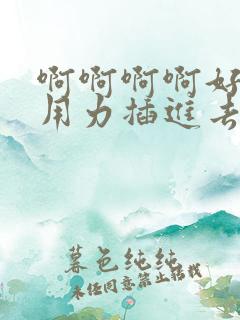 啊啊啊啊好
用力插进去
暮色纯纯
未经同意禁止转载